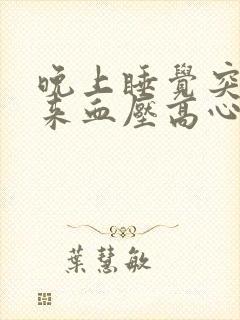 晚上睡覺突
来血壓高心
葉慧敏